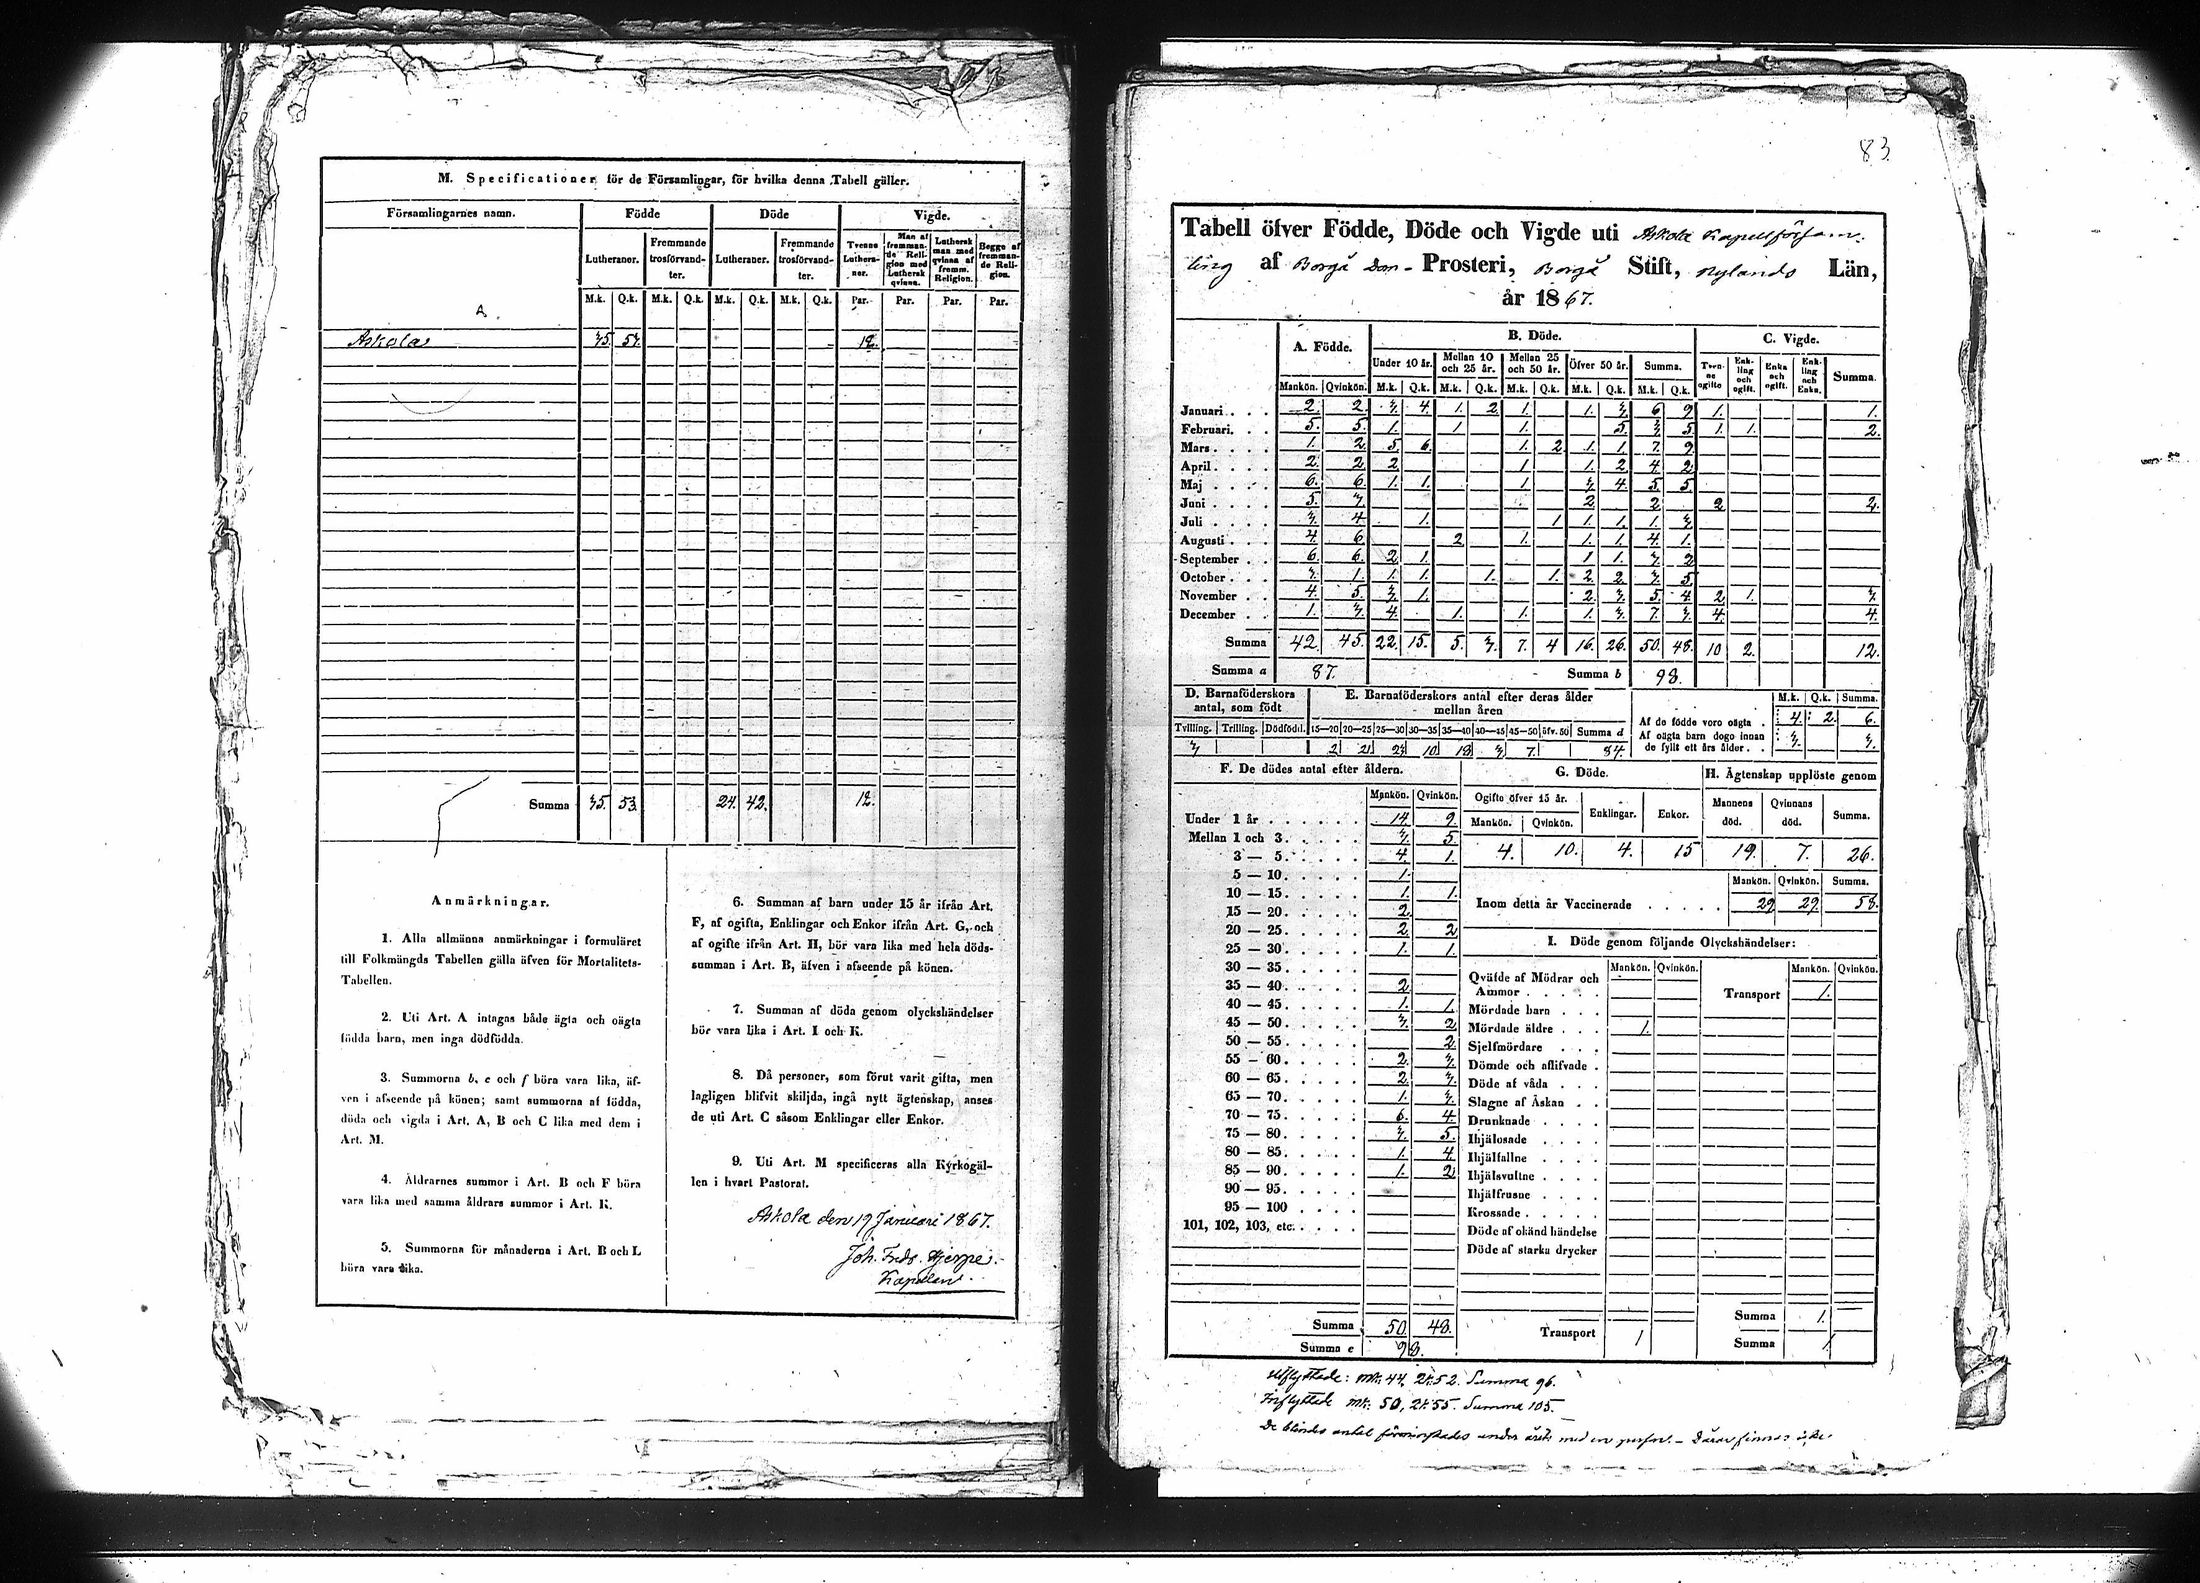 M. Specificationer för de Församlingar, för hvilka denna Tabell gäller.
Församlingarnes namn. Födde Döde Vigde.
Lutheraner. Fremmande trosförvandter. Lutheraner. Fremmande trosförvandter. Tvenne Lutheraner. Man af fremmande Religion med Luthersk qvinna. Luthersk man med qvinna af fremm. Religion. Begge af fremmande Religion.
M.k. Q.k. M.k. Q.k. M.k. Q.k. M.k. Q.k. Par. Par. Par. Par.
A.
Askola 35. 53. 12.
Summa 35. 53. 24. 42. 12.
Anmärkningar.
1. Alla allmänna anmärkningar i formuläret
till Folkmängds Tabellen gälla äfven för Mortalitets-
Tabellen.
2. Uti Art. A intagas både ägta och oägta
födda barn, men inga dödfödda.
3. Summorna b, e och f böra vara lika, äf-
ven i afseende på könen; samt summorna af födda,
döda och vigda i Art. A, B och C lika med dem i
Art. M.
4. Åldrarnes summor i Art. B och F böra
vara lika med samma åldrars summor i Art. K.
5. Summorna för månaderna i Art. B och L
böra vara lika.
6. Summan af barn under 15 år ifrån Art.
F, af ogifta, Enklingar och Enkor ifrån Art. G, och
af ogifte ifrån Art. H, bör vara lika med hela döds-
summan i Art. B, äfven i afseende på könen.
7. Summan af döda genom olyckshändelser
bör vara lika i Art. I och K.
8. Då personer, som förut varit gifta, men
lagligen blifvit skiljda, ingå nytt ägtenskap, anses
de uti Art. C såsom Enklingar eller Enkor.
9. Uti Art. M specificeras alla Kyrkogäl-
len i hvart Pastorat.
Askola den 19 Januari 1867.
Joh. Fredr. Hjerpe.
Kapellan.
83
Tabell öfver Födde, Döde och Vigde uti Askola Kapellförsam-
ling af Borgå Dom- Prosteri, Borgå Stift, Nylands Län,
år 1867.
A. Födde. B. Döde. C. Vigde.
Under 10 år. Mellan 10 och 25 år. Mellan 25 och 50 år. Öfver 50 år. Summa. Tvenne ogifte Enkling och ogift. Enka och ogift. Enkling och Enka. Summa.
Mankön. Qvinkön. M.k. Q.k. M.k. Q.k. M.k. Q.k. M.k. Q.k. M.k. Q.k.
Januari 2. 2. 3. 4. 1. 2. 1. 1. 3. 6 9 1. 1.
Februari. 5. 5. 1. 1 1. 5. 3. 5. 1. 1. 2.
Mars 1. 2. 5. 6. 1. 2. 1. 1. 7. 9.
April 2. 2. 2 1 1. 2 4 2.
Maj 6. 6. 1. 1. 1. 3. 4. 5. 5.
Juni 5. 3. 2. 2. 2 2.
Juli 3. 4 1. 1 1. 1. 1. 3.
Augusti 4. 6. 2 1. 1. 1. 4. 1.
September 6. 6. 2. 1. 1 1. 3. 2
October 3. 1. 1. 1. 1. 1. 2. 2. 3. 5.
November 4. 5. 3. 1. 2. 3. 5. 4. 2 1. 3.
December 1. 3. 4. 1. 1. 1. 3. 7. 3. 4. 4.
Summa 42. 45. 22. 15. 5. 3. 7. 4 16. 26. 50. 48. 10 2. 12.
Summa a 87. Summa b 98.
D. Barnaföderskors antal, som födt
Tvilling. Trilling. Dödfödd.
3
E. Barnaföderskors antal efter deras ålder mellan åren
15—20 20—25 25—30 30—35 35—40 40—45 45—50 öfv. 50 Summa d
2 21 23 10 18 3 7. 84.
M.k. Q.k. Summa.
Af de födde voro oägta 4. 2. 6.
Af oägta barn dogo innan
de fyllt ett års ålder 3. 3.
F. De dödes antal efter åldern.
Mankön. Qvinkön.
Under 1 år 14 9.
Mellan 1 och 3. 3. 5.
3 — 5. 4. 1.
5 — 10. 1.
10 — 15. 1. 1.
15 — 20. 2.
20 — 25. 2. 2
25 — 30. 1. 1.
30 — 35.
35 — 40. 2.
40 — 45. 1. 1.
45 — 50. 3. 2
50 — 55. 2.
55 - 60. 2. 3.
60 — 65. 2. 3.
65 — 70. 1. 3.
70 — 75. 6. 4.
75 — 80. 3. 5.
80 — 85. 1. 4.
85 — 90. 1. 2
90 — 95.
95 — 100
101, 102, 103, etc.
Summa 50. 48.
Summa e 98.
G. Döde.
Ogifte öfver 15 år. Enklingar. Enkor.
Mankön. Qvinkön.
4. 10. 4. 15
H. Ägtenskap upplöste genom
Mannens död. Qvinnans död. Summa.
19. 7. 26.
Mankön. Qvinkön. Summa.
Inom detta år Vaccinerade 29 29. 58.
I. Döde genom följande Olyckshändelser:
Mankön. Qvinkön. Mankön. Qvinkön.
Qväfde af Mödrar och
Ammor Transport 1.
Mördade barn
Mördade äldre 1.
Sjelfmördare
Dömde och aflifvade
Döde af våda
Slagne af Åskan
Drunknade
Ihjälosade
Ihjälfallne
Ihjälsvultne
Ihjälfrusne
Krossade
Döde af okänd händelse
Döde af starka drycker
Summa 1.
Transport 1 Summa 1
Utflyttade: mk: 44, Qk: 52. Summa 96.
Inflyttade mk: 50, Qk: 55. Summa 105.
De blindes antal förminskades under året med en person. – Dårar finnas icke.